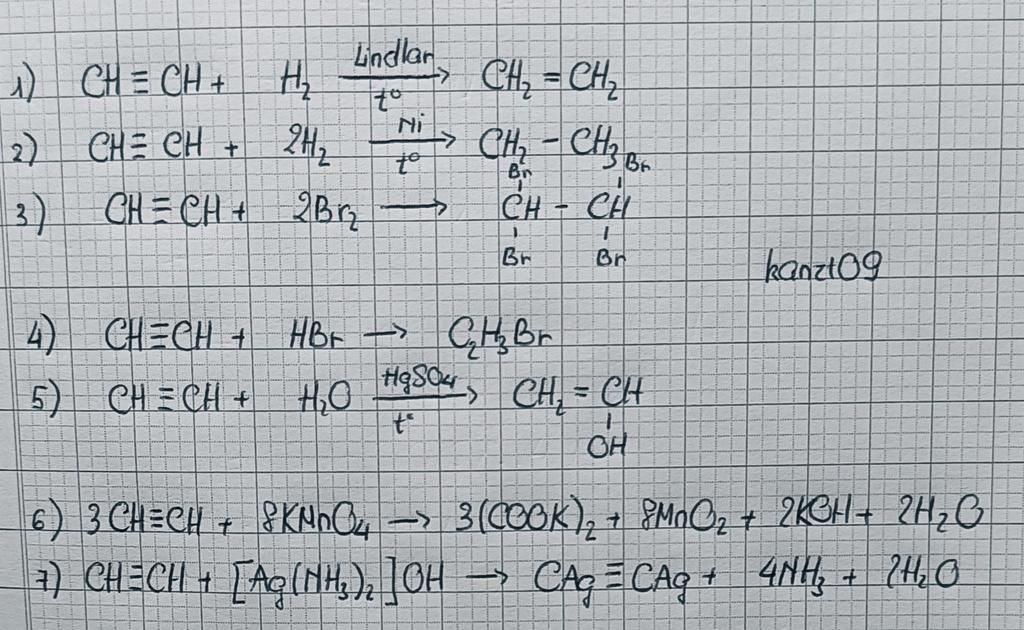 1) CH ≡ CH + H₂ —Lindlar/t°→ CH₂ = CH₂
2) CH ≡ CH + 2H₂ —Ni/t°→ CH₂ – CH₃
Br Br
3) CH ≡ CH + 2Br₂ → CH – CH
Br Br
kanzt09
4) CH ≡ CH + HBr → C₂H₃Br
5) CH ≡ CH + H₂O —HgSO₄/t°→ CH₂ = CH
OH
6) 3CH≡CH + 8KMnO₄ → 3(COOK)₂ + 8MnO₂ + 2KOH + 2H₂O
7) CH≡CH + [Ag(NH₃)₂]OH → CAg ≡ CAg + 4NH₃ + 2H₂O